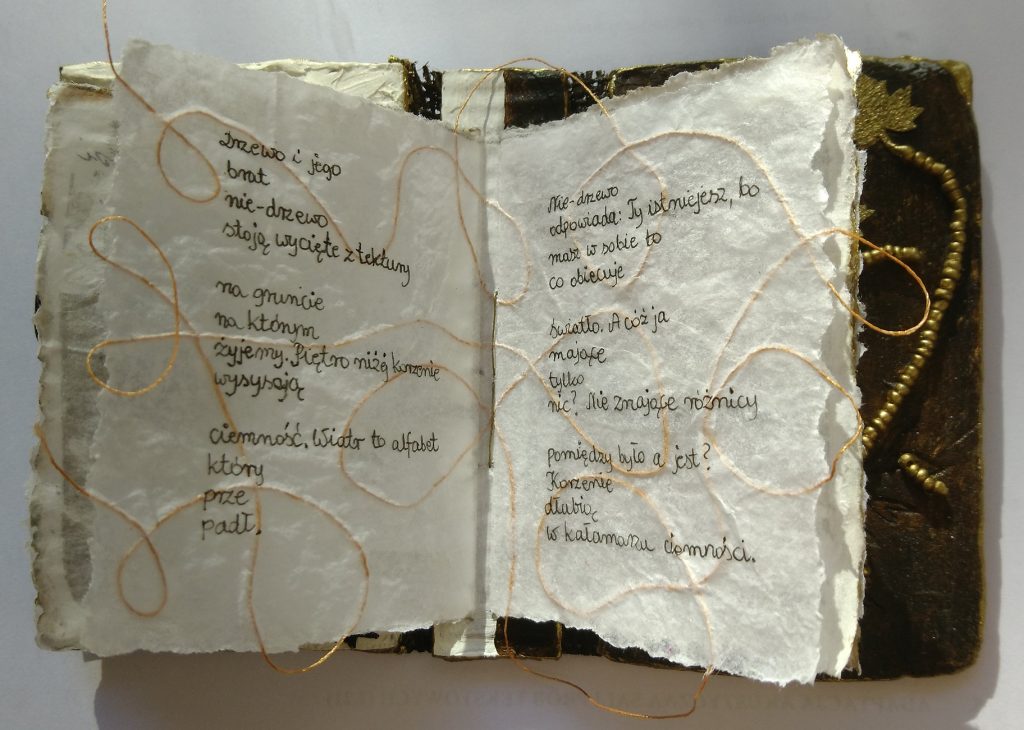 Drzewo i jego
brat
nie-drzewo
stoją wycięte z tektury
na gruncie
na którym
żyjemy. Piętro niżej korzenie
wysysają
ciemność. Wiatr to alfabet
który
prze
padł.
Nie-drzewo
odpowiada: Ty istniejesz, bo
masz w sobie to
co obiecuje
światło. A cóż ja
mające
tylko
nic? Nie znające różnicy
pomiędzy było a jest?
Korzenie
dłubią
w kałamarzu ciemności.